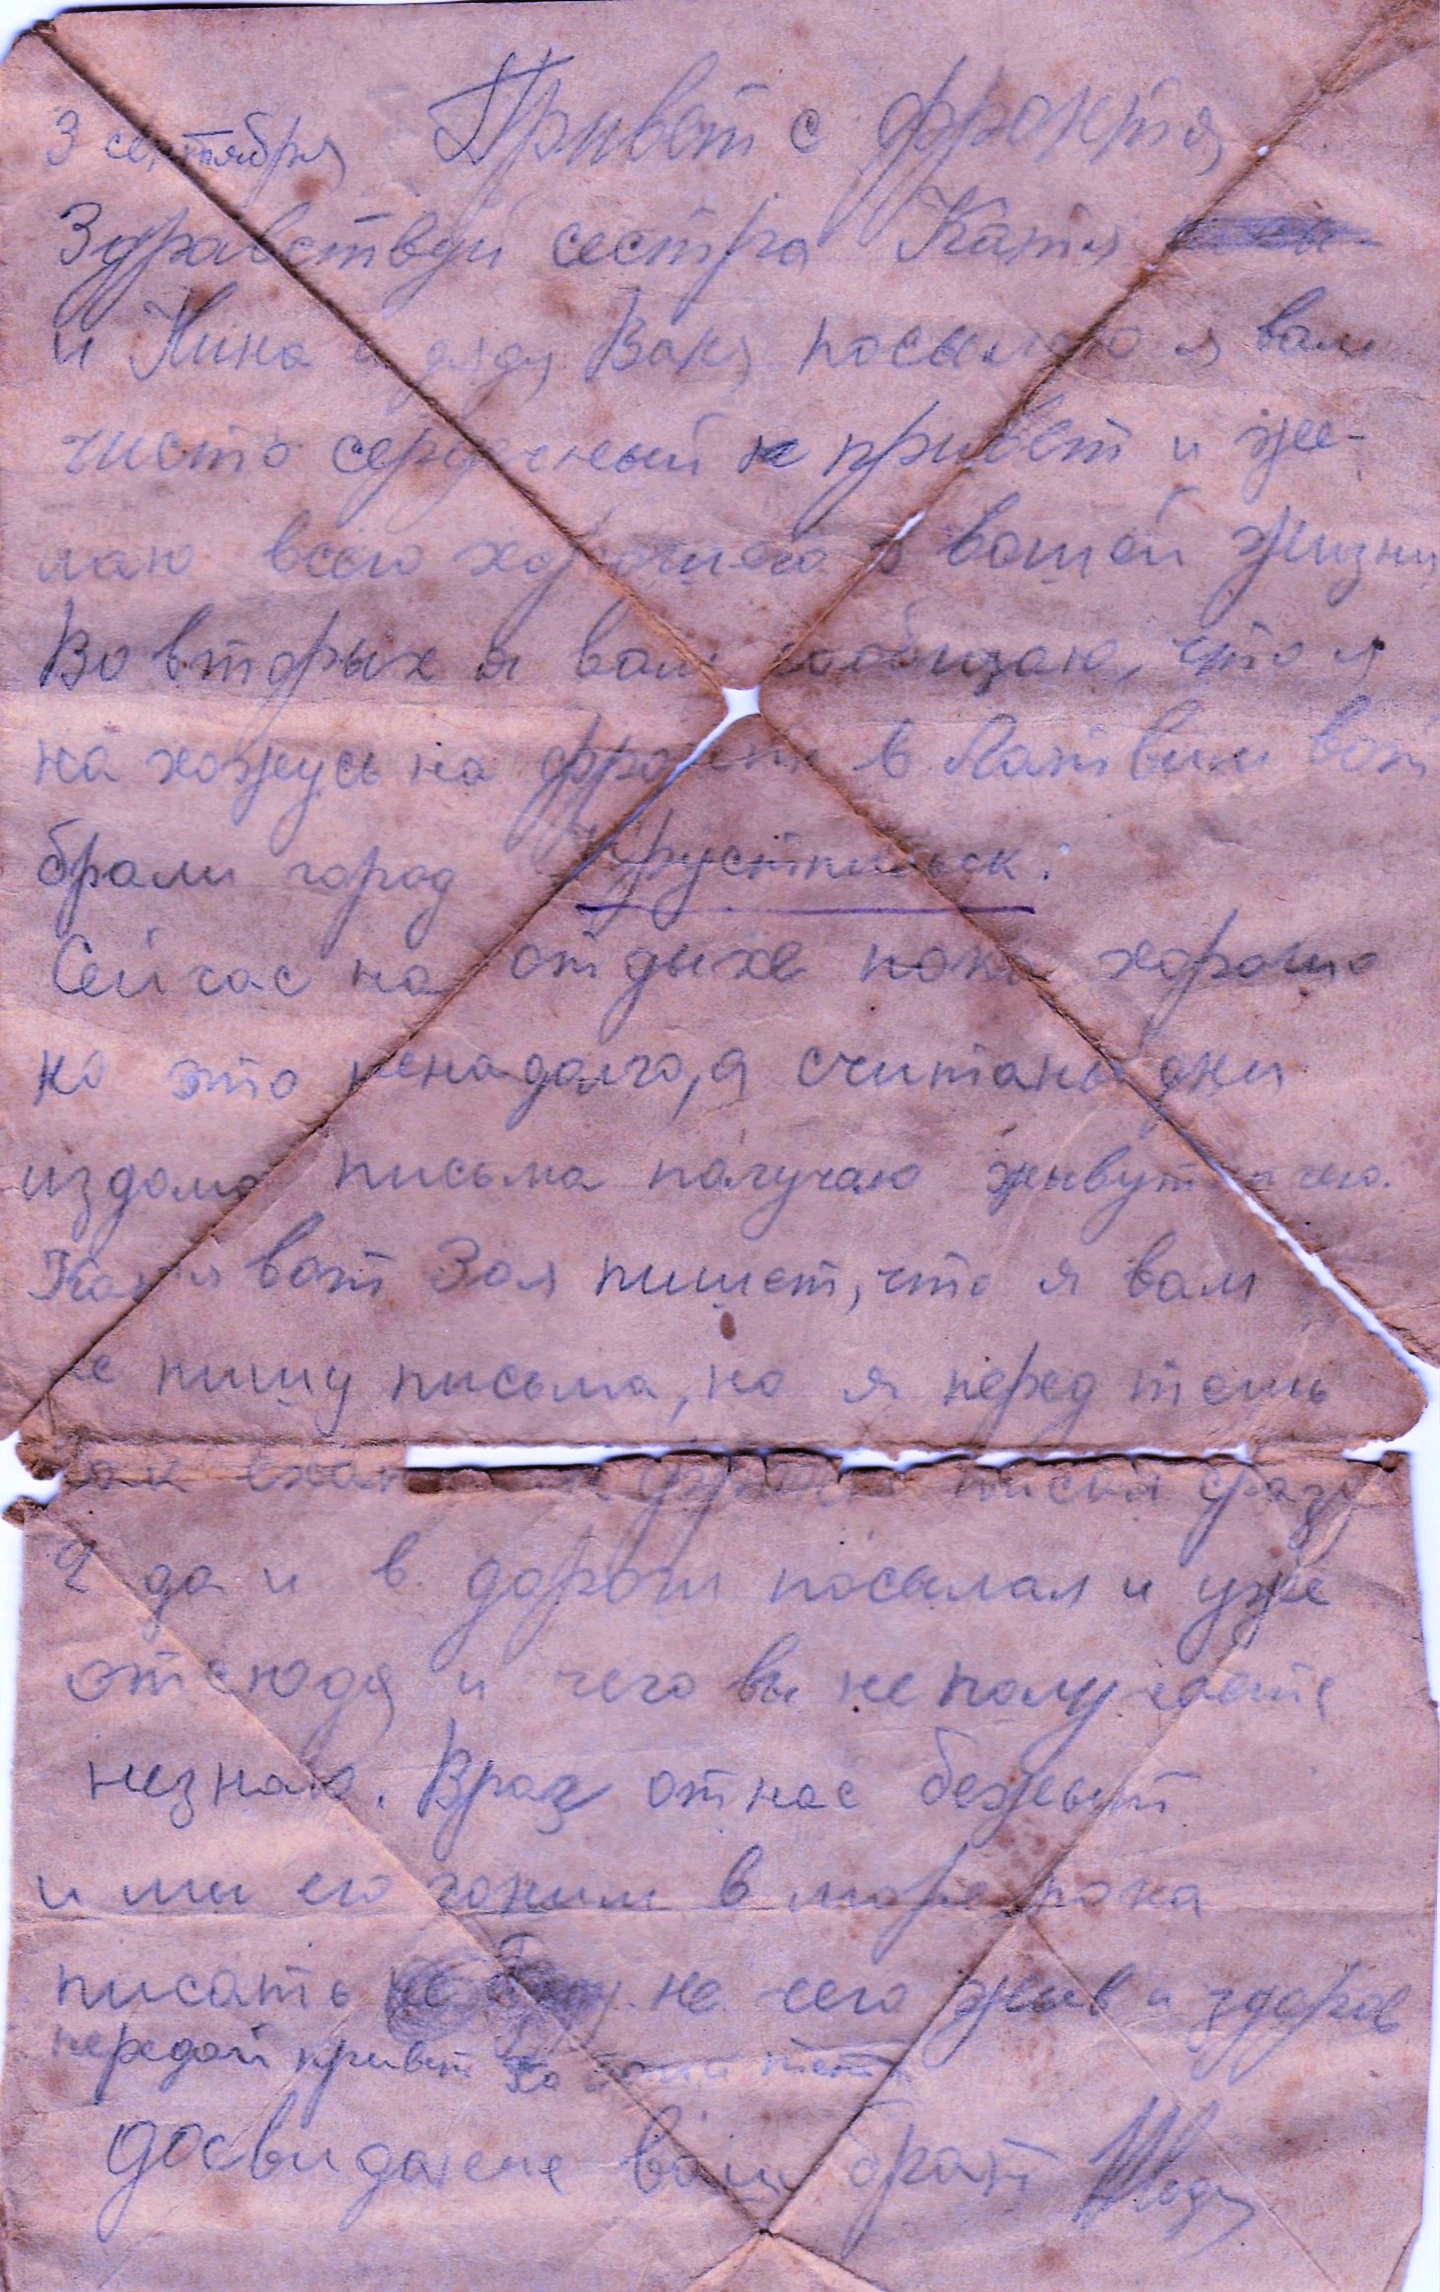 3 сентября Привет с фронта
Здравствуй сестра Катя
и Нина и дядя Ваня посылаю я вам
чисто сердечный привет и же-
лаю всего хорошего в вашей жизни
Во вторых я вам сообщаю, что я
на хожусь на фронте в Латвии вот
брали город Крустпильск.
Сейчас на отдыхе пока хорошо
но это ненадолго, а считаны дни
из дома письма получаю жывут ничего.
Катя вот Зоя пишет, что я вам
не пишу письма, но я перед темь
как ехать фронт писал сразу
2 да и в дороги посылал и уже
отсюда и чего вы не получаете
незнаю. Враг от нас бежыт
и ми его гоним в море пока
писать не чего жыв и здоров
передай привет
досвидание ваш брат